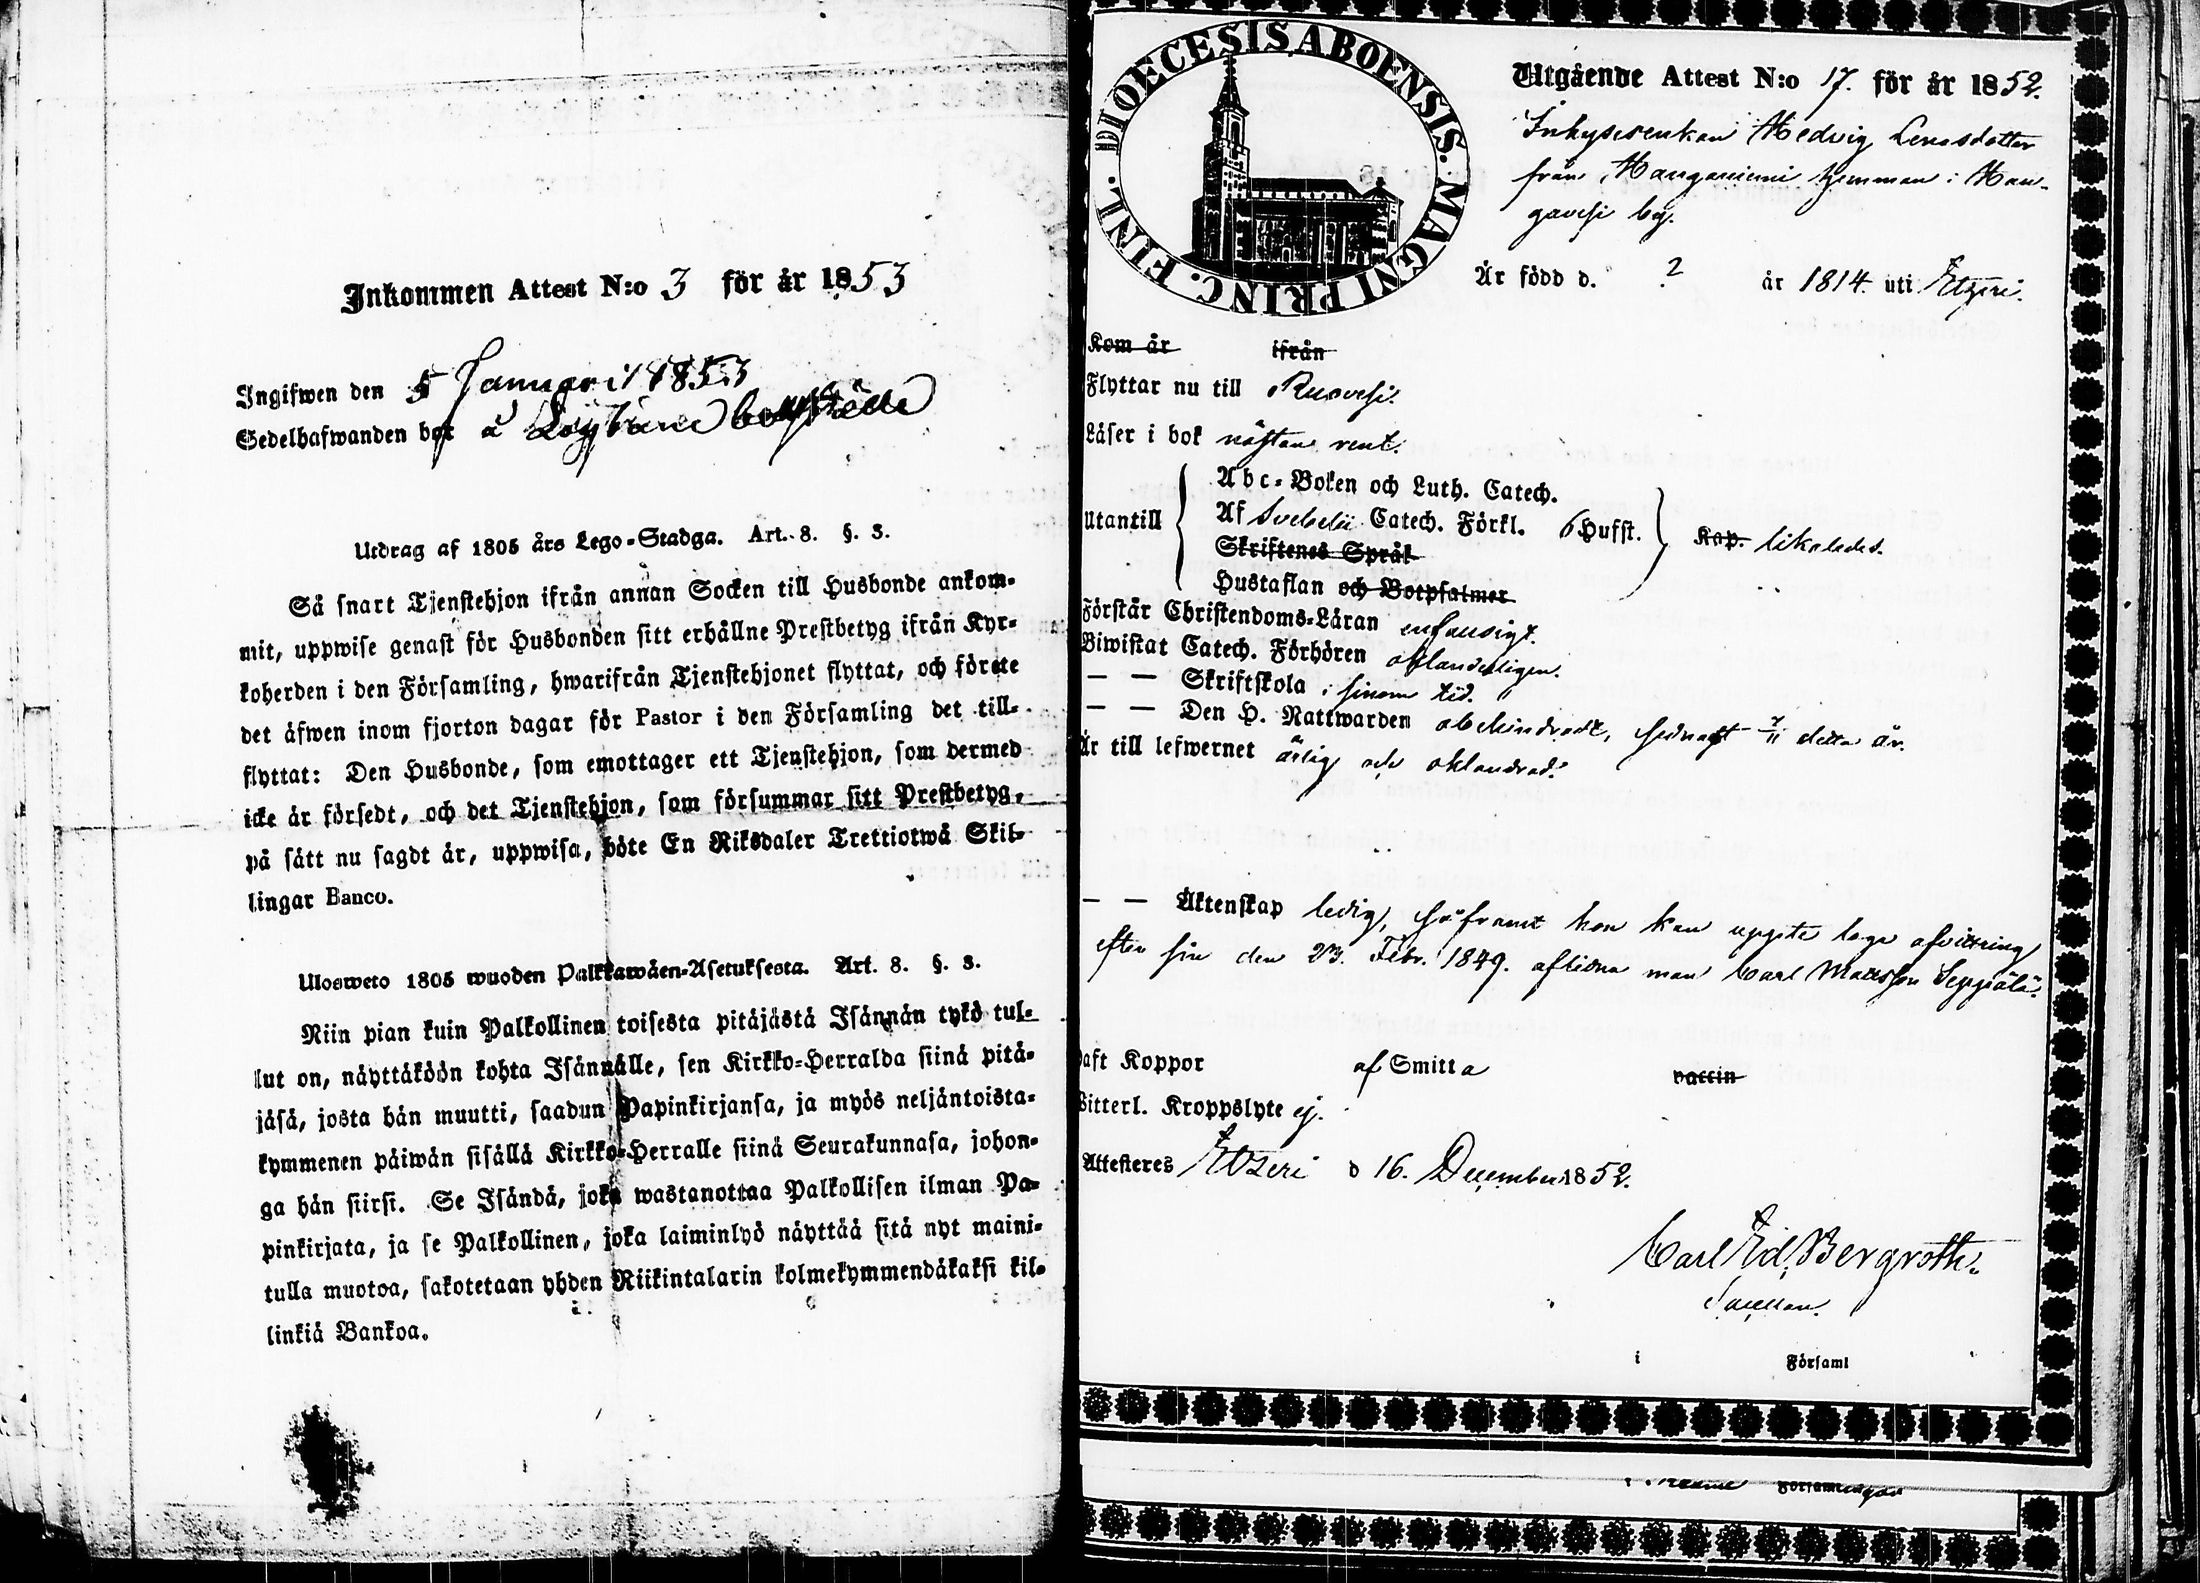 Inkommen Attest N:o 3 för år 1853
Ingifwen den 5 Januari 1853
Sedelhafwanden bor å
Utdrag af 1805 års Lego-Stadga. Art. 8. §. 3.
Så snart Tjenstehjon ifrån annan Socken till Husbonde ankom-
mit, uppwise genast för Husbonden sitt erhållne Prestbetyg ifrån Kyr-
koherden i den Församling, hwarifrån Tjenstehjonet flyttat, och förete
det äfwen inom fjorton dagar för Pastor i den Församling det till-
flyttat: Den Husbonde, som emottager ett Tjenstehjon, som dermed
icke är försedt, och det Tjenstehjon, som försummar sitt Prestbetyg,
på sätt nu sagdt är, uppwisa, böte En Riksdaler Trettiotwå Skil-
lingar Banco.
Ulosweto 1805 wuoden Palkkawäen-Asetuksesta. Art. 8. §. 3.
Niin pian kuin Palkollinen toisesta pitäjästä Isännän tykö tul-
lut on, näyttäköön kohta Isännälle, sen Kirkko-Herralda siinä pitä-
jäsä, josta hän muutti, saadun Papinkirjansa, ja myös neljäntoista-
kymmenen päiwän sisällä Kirkko-Herralle siinä Seurakunnasa, johon-
ga hän siirsi. Se Isändä, joka wastanottaa Palkollisen ilman Pa-
pinkirjata, ja se Palkollinen, joka laiminlyö näyttää sitä nyt maini-
tulla muotoa, sakotetaan yhden Riikintalarin kolmekymmendäkaksi kil-
linkiä Bankoa.
DIOECESIS ABOENSIS. MAGNI PRINC. FINL.
Utgående Attest N:o 17. för år 1852.
Inhysesenkan Hedvig Lenasdotter
från Hanganiemi hemman i Han-
gavesi by.
Är född d. ? år 1814. uti Etzeri.
Kom år ifrån
Flyttar nu till Ruovesi.
Läser i bok nästan rent.
Utantill
Abc-Boken och Luth. Catech.
Af Svebelii Catech. Förkl. 6 Hufst. Kap. likaledes.
Skriftenes Språk
Hustaflan och Botpsalmer
Förstår Christendoms-Läran enfaldigt.
Biwistat Catech. Förhören oklanderligen.
— — Skriftskola i sinom tid.
— — Den H. Nattwarden obehindradt, sednast 7/11 detta år.
Är till lefwernet ärlig och oklandrad.
— — Äktenskap ledig, såframt hon kan uppte laga afvittring
efter sin den 23. Febr. 1849. aflidna man Carl Mattsson Seppälä.
Haft Koppor af Smitta vaccin
Witterl. Kroppslyte ej.
Attesteres Etzeri d 16. December 1852.
Carl Ed. Bergroth.
Sacellan.
i Församl
Församlingar